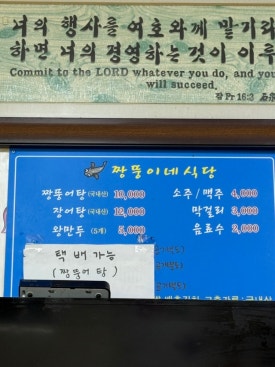 너의 행사를 여호와께 맡기라
하면 너의 경영하는것이 이루
Commit to the LORD whatever you do, and you
will succeed.
잠 Pr 16:3
짱뚱이네식당
짱뚱어탕(국내산) 10,000
장어탕(국내산) 12,000
왕만두 (5개) 5,000
소주/맥주 4,000
막걸리 3,000
음료수 2,000
택배가능
(짱뚱어탕)